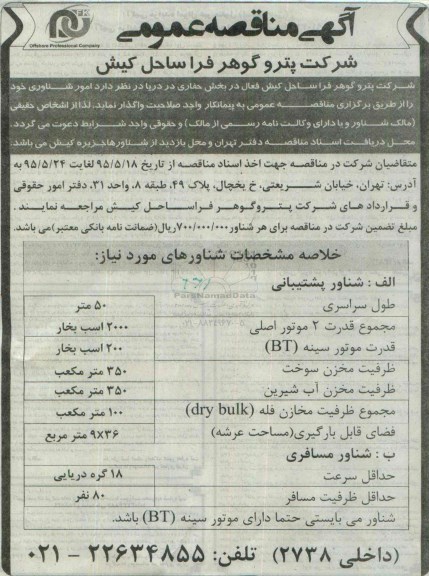 آگهی مناقصه عمومی
Offshore Professional Company
شرکت پترو گوهر فرا ساحل کیش
شرکت پترو گوهر فرا ساحل کیش فعال در بخش حفاری در دریا در نظر دارد امور شناوری خود
را از طریق برگزاری مناقصه عمومی به پیمانکار واجد صلاحیت واگذار نماید. لذا از اشخاص حقیقی
(مالک شناور و یا دارای وکالت نامه رسمی از مالک) و حقوقی واجد شرایط دعوت می گردد
محل دریافت اسناد مناقصه دفتر تهران و محل بازدید از شناورها جزیره کیش می باشد.
متقاضیان شرکت در مناقصه جهت اخذ اسناد مناقصه از تاریخ ۹۵/۵/۱۸ لغایت ۹۵/۵/۲۴ به
آدرس: تهران، خیابان شریعتی، خ یخچال، پلاک ۴۹، طبقه ۸، واحد ۳۱، دفتر امور حقوقی
و قرارداد های شرکت پترو گوهر فرا ساحل کیش مراجعه نمایند.
مبلغ تضمین شرکت در مناقصه برای هر شناور ۷۰۰/۰۰۰/۰۰۰ ریال (ضمانت نامه بانکی معتبر) می باشد.
خلاصه مشخصات شناورهای مورد نیاز:
الف: شناور پشتیبانی
طول سراسری ۵۰ متر
مجموع قدرت ۲ موتور اصلی ۲۰۰۰ اسب بخار
قدرت موتور سینه (BT) ۲۰۰ اسب بخار
ظرفیت مخزن سوخت ۳۵۰ متر مکعب
ظرفیت مخزن آب شیرین ۳۵۰ متر مکعب
مجموع ظرفیت مخازن فله (dry bulk) ۱۰۰ متر مکعب
فضای قابل بارگیری (مساحت عرشه) ۹X۳۶ متر مربع
ب: شناور مسافری
حداقل سرعت ۱۸ گره دریایی
حداقل ظرفیت مسافر ۸۰ نفر
شناور می بایستی حتما دارای موتور سینه (BT) باشد.
(داخلی ۲۷۳۸) تلفن: ۲۲۶۳۴۸۵۵ - ۰۲۱